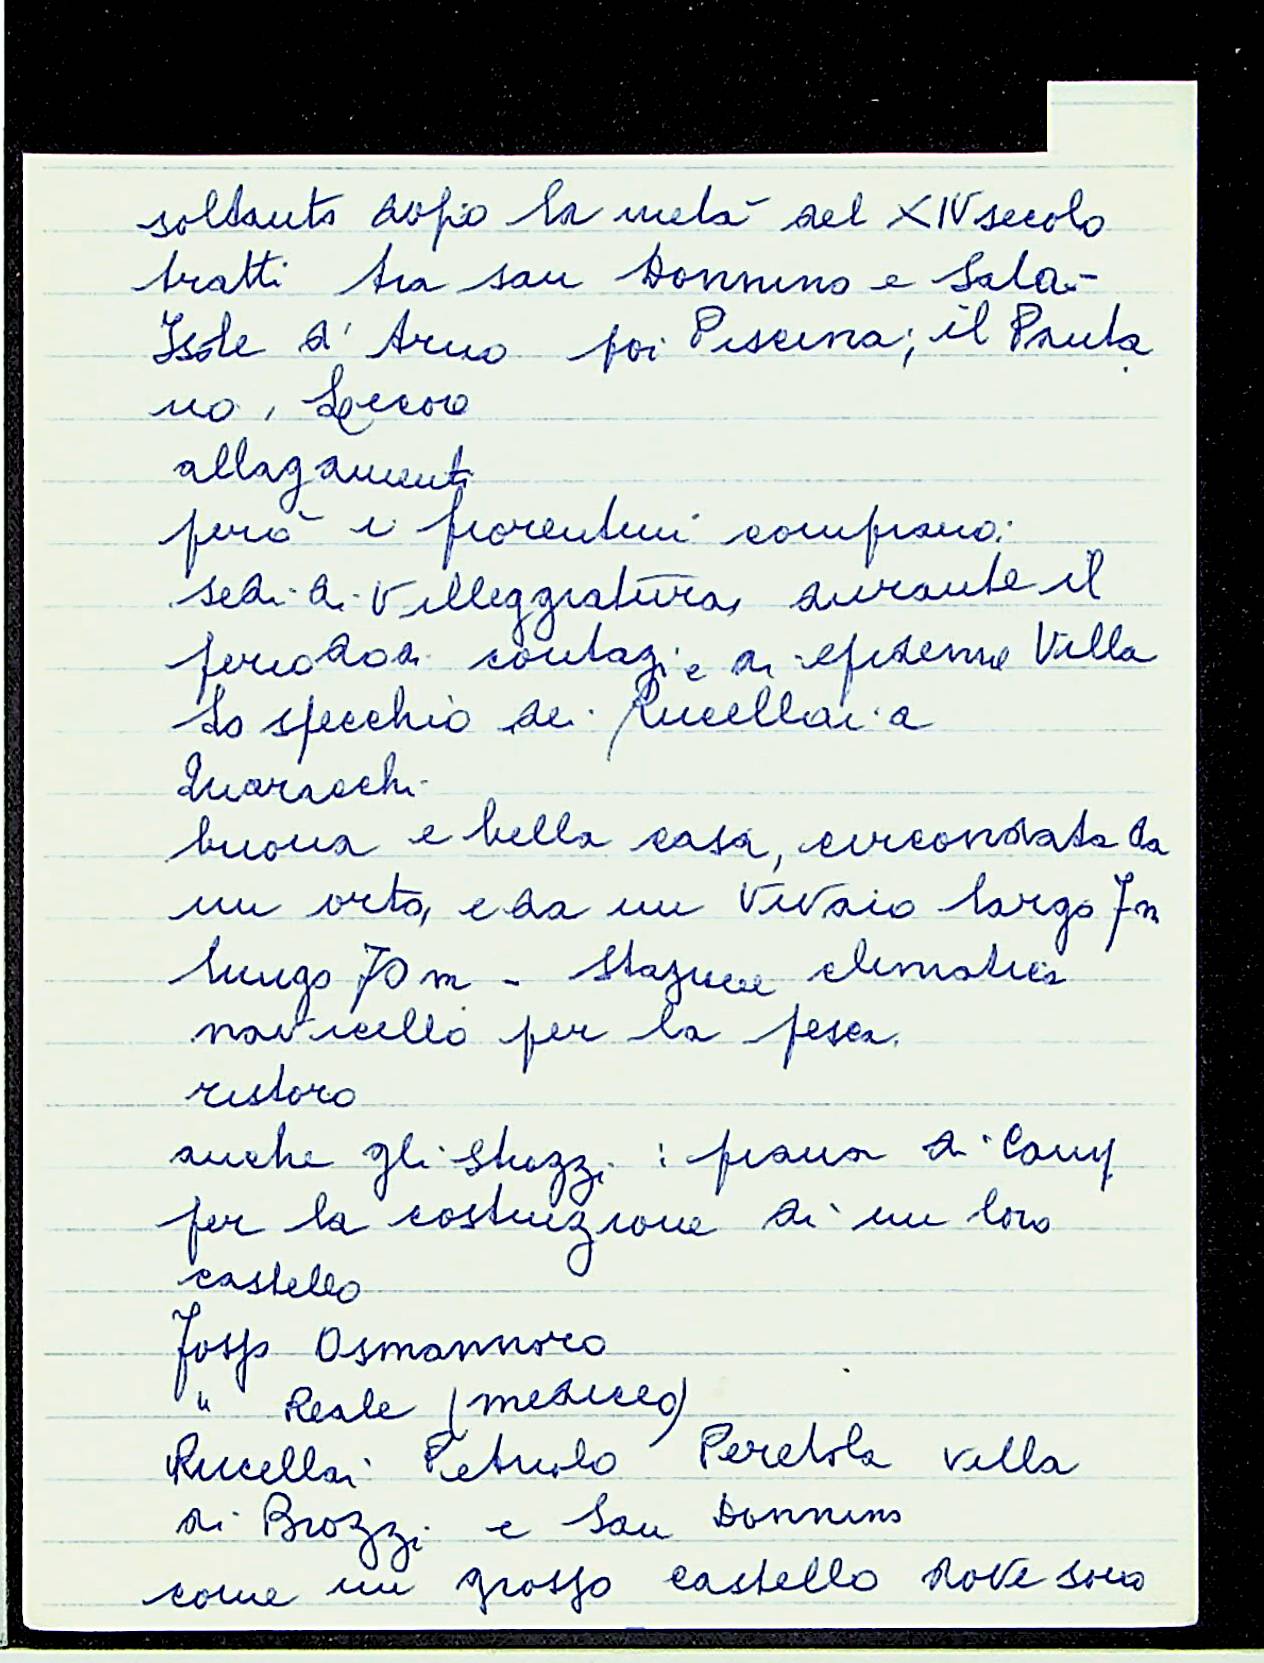 soltanto dopo la metà del XIV secolo
tratti tra san Donnino e Sala-
Isole d'Arno poi Piscina; il Panta
no,
allagamenti
però i fiorentini comprano:
sedi di villeggiatura, durante il
periodo di contagi e di epidemie Villa
Lo specchio dei Rucellai a
Quaracchi
buona e bella casa, circondata da
un orto, e da un vivaio largo 7 m
lungo 70 m - Stazione climatica
navicello per la pesca.
ristoro
anche gli Strozzi: piana di Camp
per la costruzione di un loro
castello
Fosso Osmannoro
" Reale (mediceo)
Rucellai Petriolo Peretola villa
di Brozzi e San Donnino
come un grosso castello dove sono